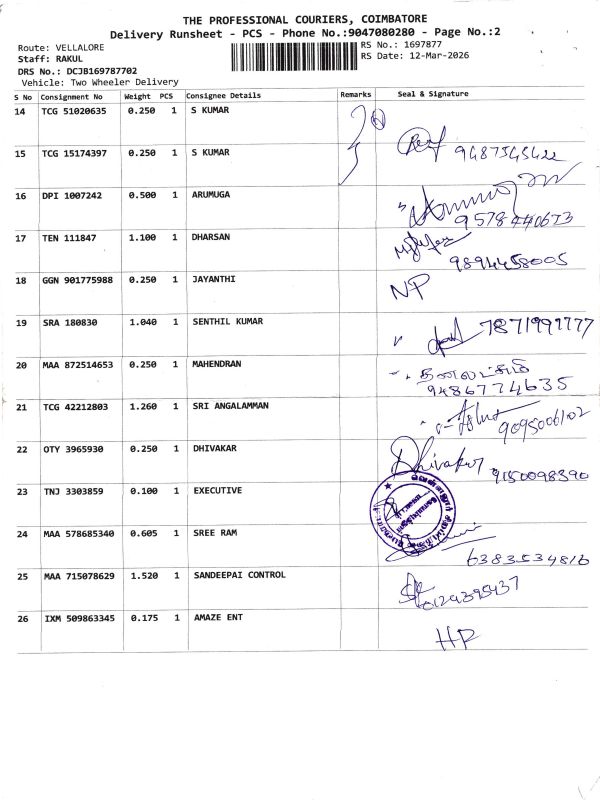 THE PROFESSIONAL COURIERS, COIMBATORE
Delivery Runsheet - PCS - Phone No.:9047080280 - Page No.:2
Route: VELLALORE
Staff: RAKUL
DRS No.: DCJB169787702
Vehicle: Two Wheeler Delivery
RS No.: 1697877
RS Date: 12-Mar-2026
S No Consignment No Weight PCS Consignee Details Remarks Seal & Signature
14 TCG 51020635 0.250 1 S KUMAR
15 TCG 15174397 0.250 1 S KUMAR 9487545422
16 DPI 1007242 0.500 1 ARUMUGA 9578440613
17 TEN 111847 1.100 1 DHARSAN 9894458005
18 GGN 901775988 0.250 1 JAYANTHI NP
19 SRA 180830 1.040 1 SENTHIL KUMAR 7871991777
20 MAA 872514653 0.250 1 MAHENDRAN
9486774635
21 TCG 42212803 1.260 1 SRI ANGALAMMAN 9095006102
22 OTY 3965930 0.250 1 DHIVAKAR Dhivakar 9150098390
23 TNJ 3303859 0.100 1 EXECUTIVE
24 MAA 578685340 0.605 1 SREE RAM 6383534816
25 MAA 715078629 1.520 1 SANDEEPAI CONTROL
26 IXM 509863345 0.175 1 AMAZE ENT